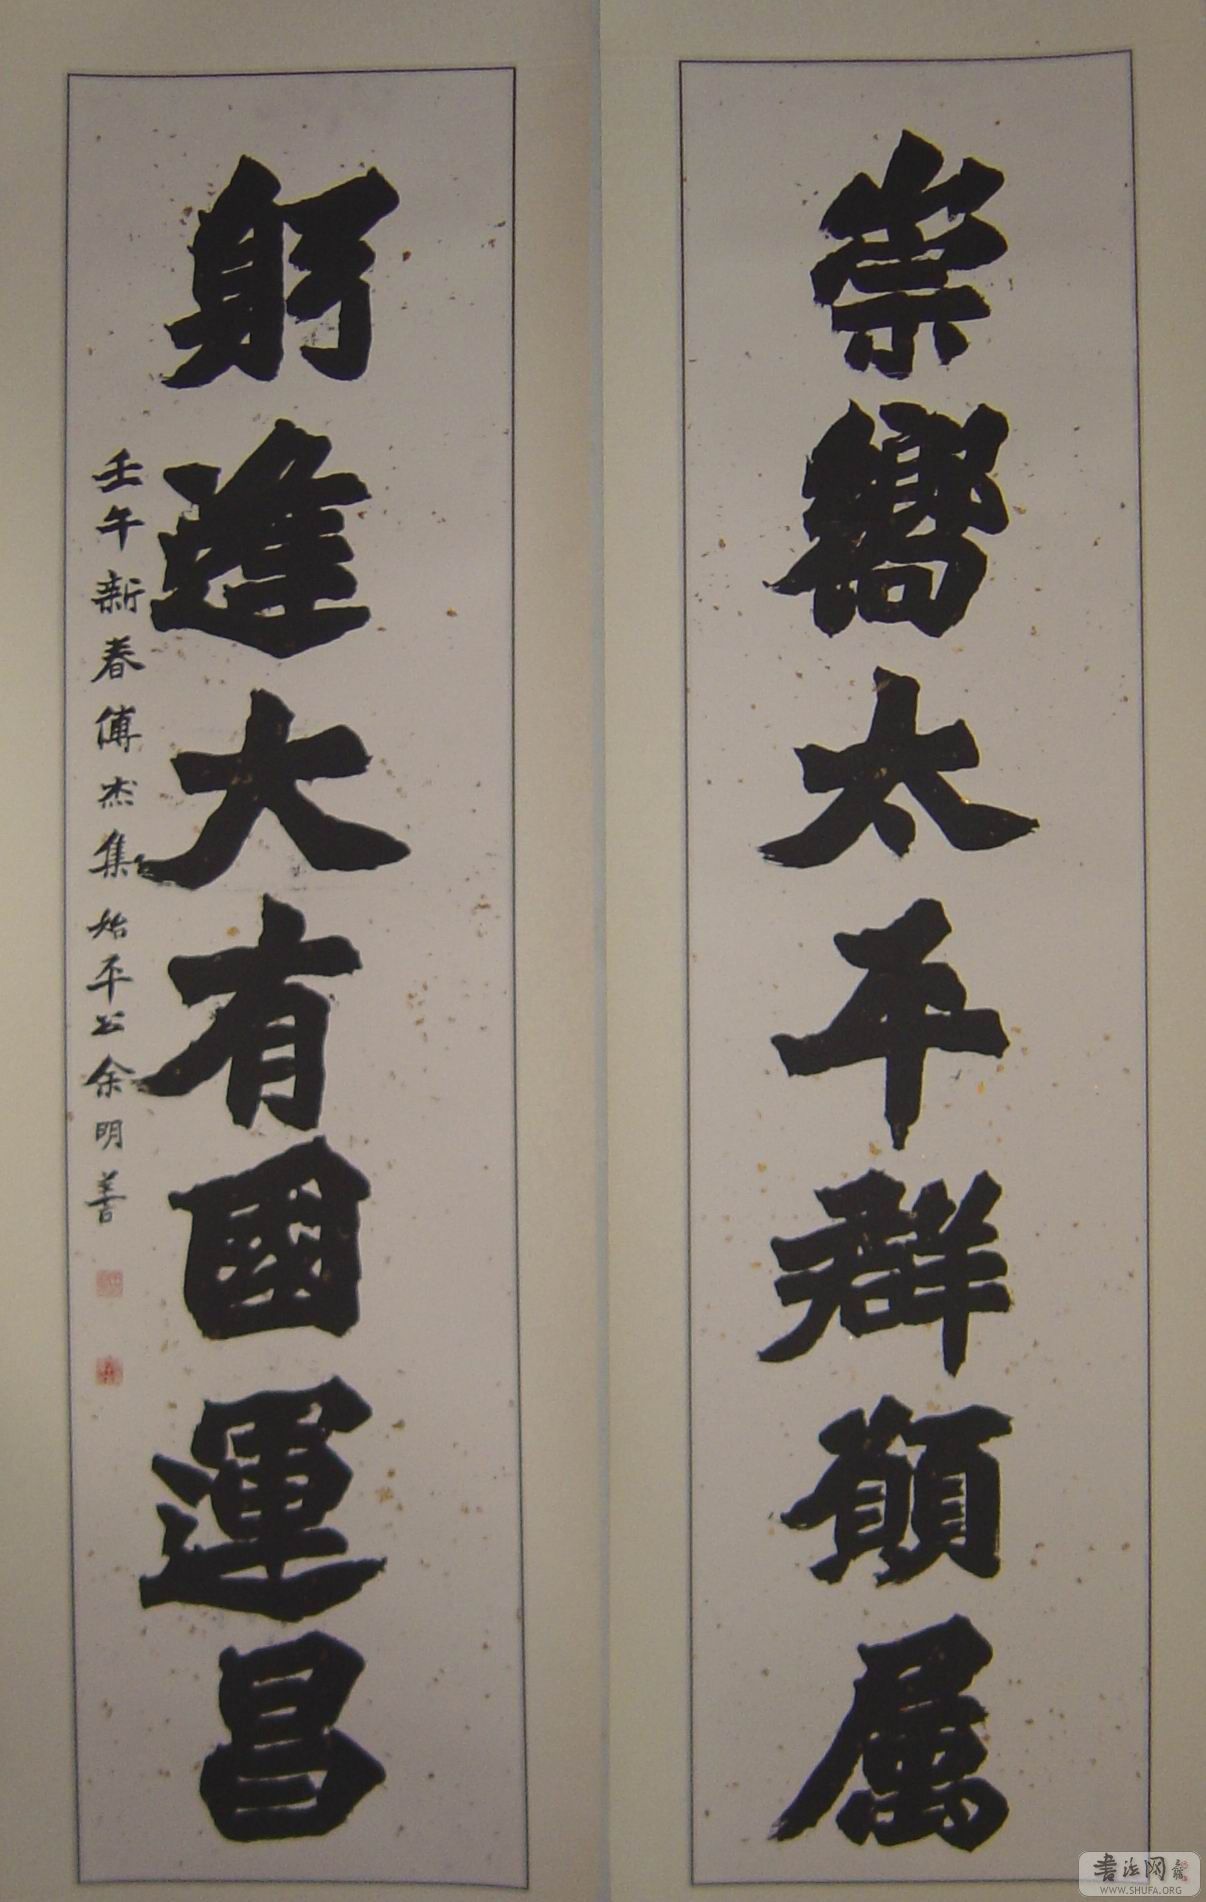 崇嚮太平群願属
躬逢大有國運昌
壬午新春傅杰集始平公余明善
書法网
WWW.SHUFA.ORG